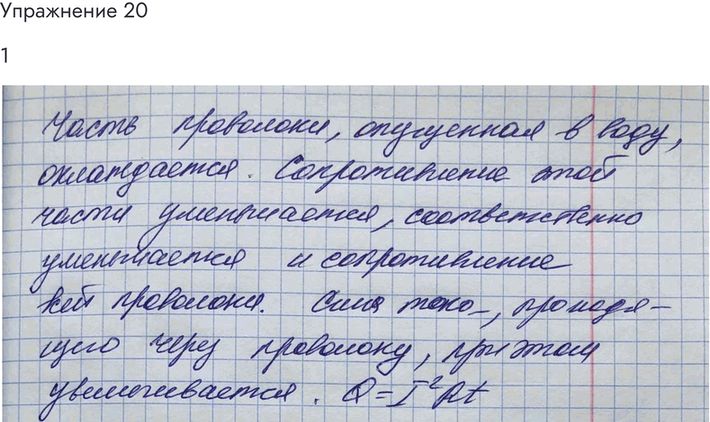 Упражнение 20
1
Часть проволоки, опущенная в воду,
охлаждается. Сопротивление этой
части уменьшается, соответственно
уменьшается и сопротивление
всей проволоки. Сила тока, проходя-
щего через проволоку, при этом
увеличивается. Q=I²Rt